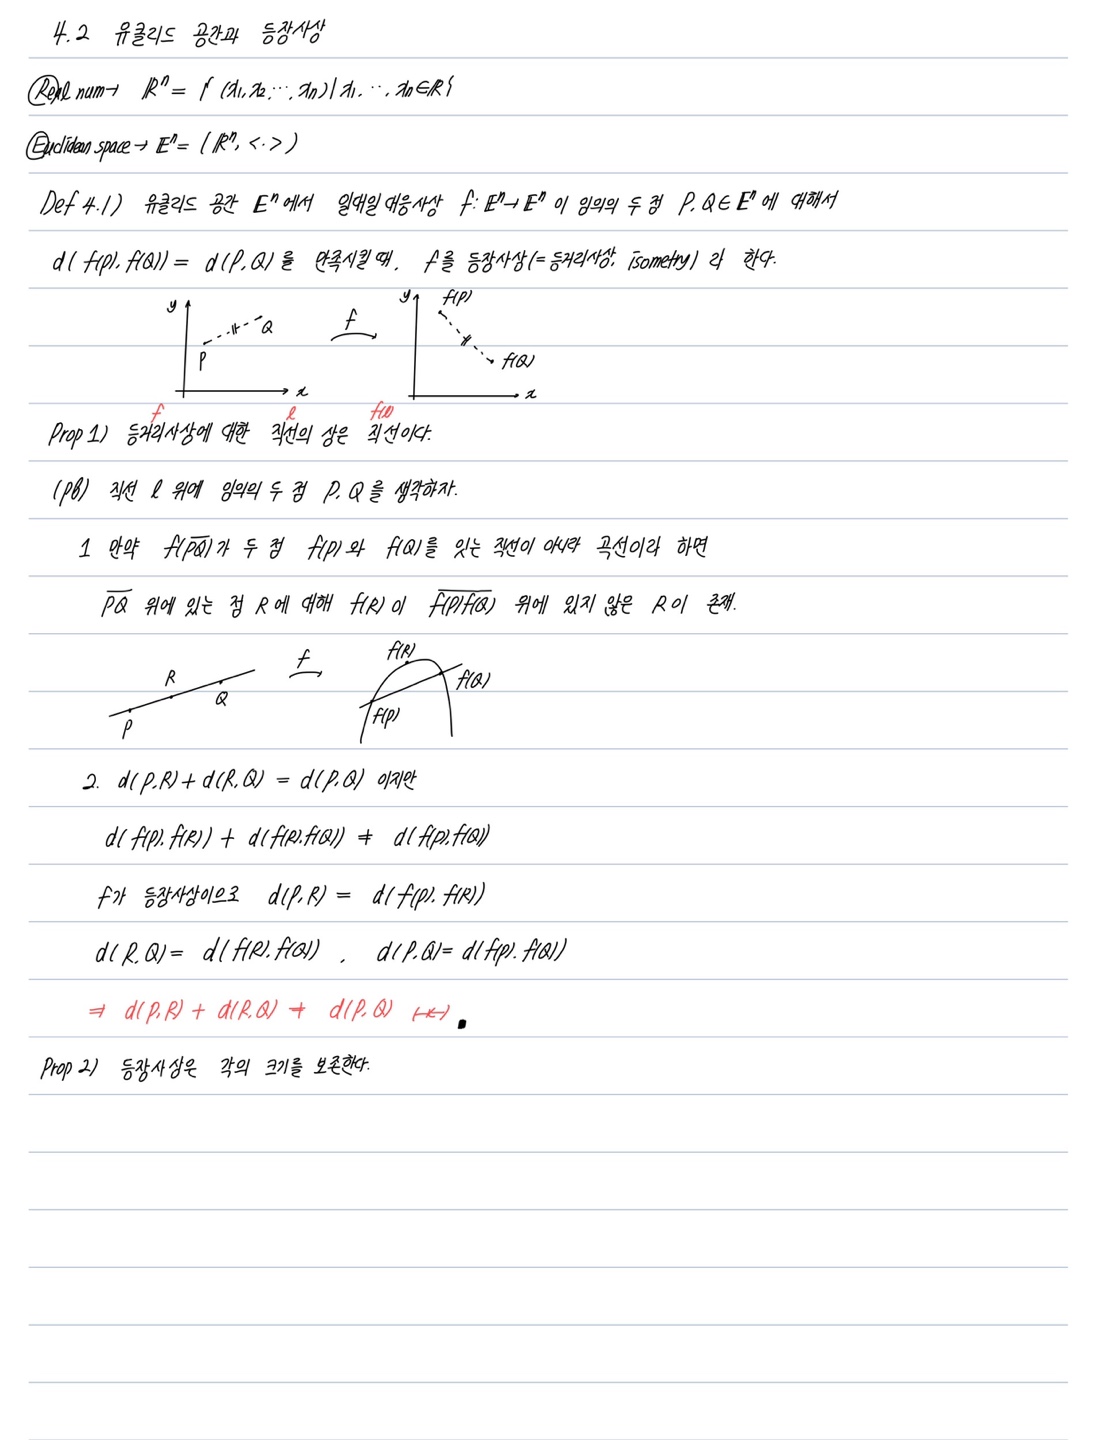 4.2 유클리드 공간과 등장사상
Real num → ℝⁿ = { (x₁, x₂, ⋯, xₙ) | x₁, ⋯, xₙ ∈ ℝ }
Euclidean space → 𝔼ⁿ = (ℝⁿ, <·>)
Def 4.1) 유클리드 공간 𝔼ⁿ에서 일대일 대응사상 f: 𝔼ⁿ → 𝔼ⁿ 이 임의의 두 점 P, Q ∈ 𝔼ⁿ에 대해서
d( f(P), f(Q)) = d(P, Q)를 만족시킬 때, f를 등장사상(= 등거리사상, isometry) 라 한다.
y
P
Q
x
f
y
f(P)
f(Q)
x
f l f(l)
Prop 1) 등거리사상에 대한 직선의 상은 직선이다.
(pf) 직선 l 위에 임의의 두 점 P, Q를 생각하자.
1 만약 f(P̅Q̅)가 두 점 f(P)와 f(Q)를 잇는 직선이 아니라 곡선이라 하면
P̅Q̅ 위에 있는 점 R에 대해 f(R)이 f̅(̅P̅)̅f̅(̅Q̅)̅ 위에 있지 않은 R이 존재.
P
R
Q
f
f(R)
f(Q)
f(P)
2. d(P,R) + d(R,Q) = d(P,Q) 이지만
d( f(P), f(R)) + d( f(R), f(Q)) ≠ d( f(P), f(Q))
f가 등장사상이으로 d(P,R) = d( f(P), f(R))
d(R,Q) = d( f(R), f(Q)) , d(P,Q) = d( f(P), f(Q))
⇒ d(P,R) + d(R,Q) ≠ d(P,Q) (→←) ■
Prop 2) 등장사상은 각의 크기를 보존한다.